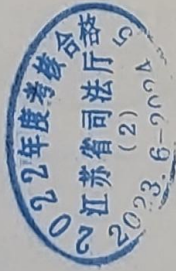 2022年度考核合格
江苏省司法厅
(2)
2023.6-2024.5